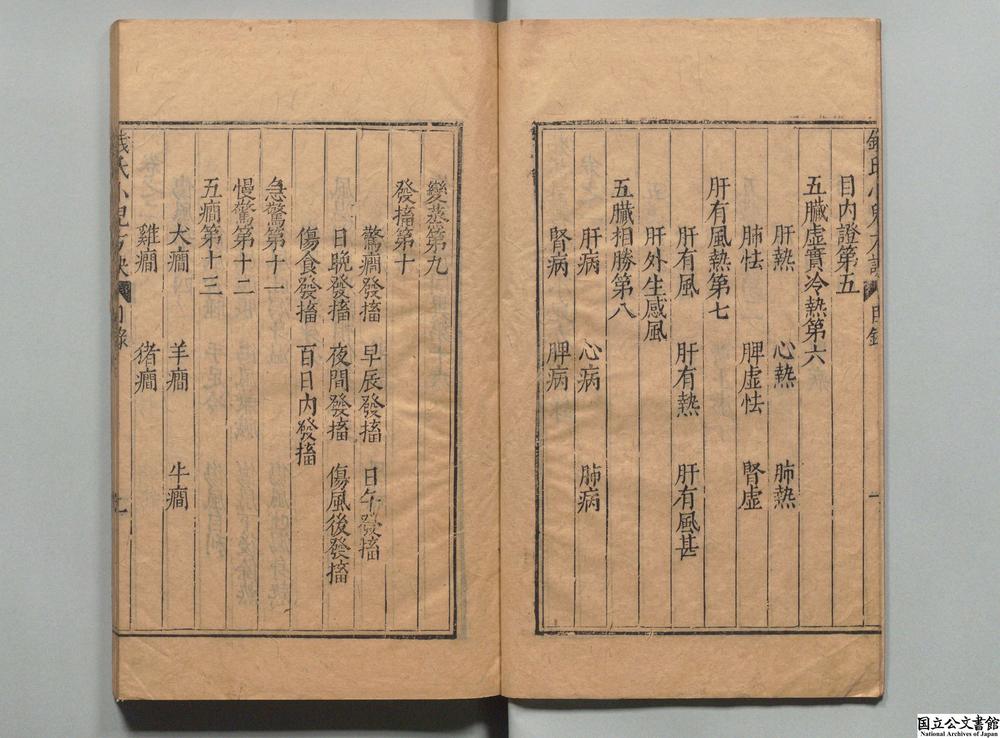 目內證第五
五臟虛實冷熱第六
肝熱 心熱 肺熱
肺怯 脾虛怯 腎虛
肝有風熱第七
肝有風 肝有熱 肝有風甚
肝外生感風
五臟相勝第八
肝病 心病 肺病
腎病 脾病
變蒸第九
發搐第十
驚癇發搐 早辰發搐 日午發搐
日晚發搐 夜間發搐 傷風後發搐
傷食發搐 百日內發搐
急驚第十一
慢驚第十二
五癇第十三
犬癇 羊癇 牛癇
雞癇 猪癇
錢氏小兒方訣 目錄
国立公文書館
National Archives of Japan